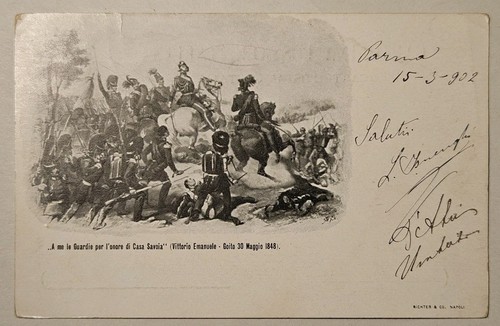 Parma
15-3-902
Saluti
„A me le Guardie per l'onore di Casa Savoia" (Vittorio Emanuele - Goito 30 Maggio 1848).
RICHTER & CO., NAPOLI.